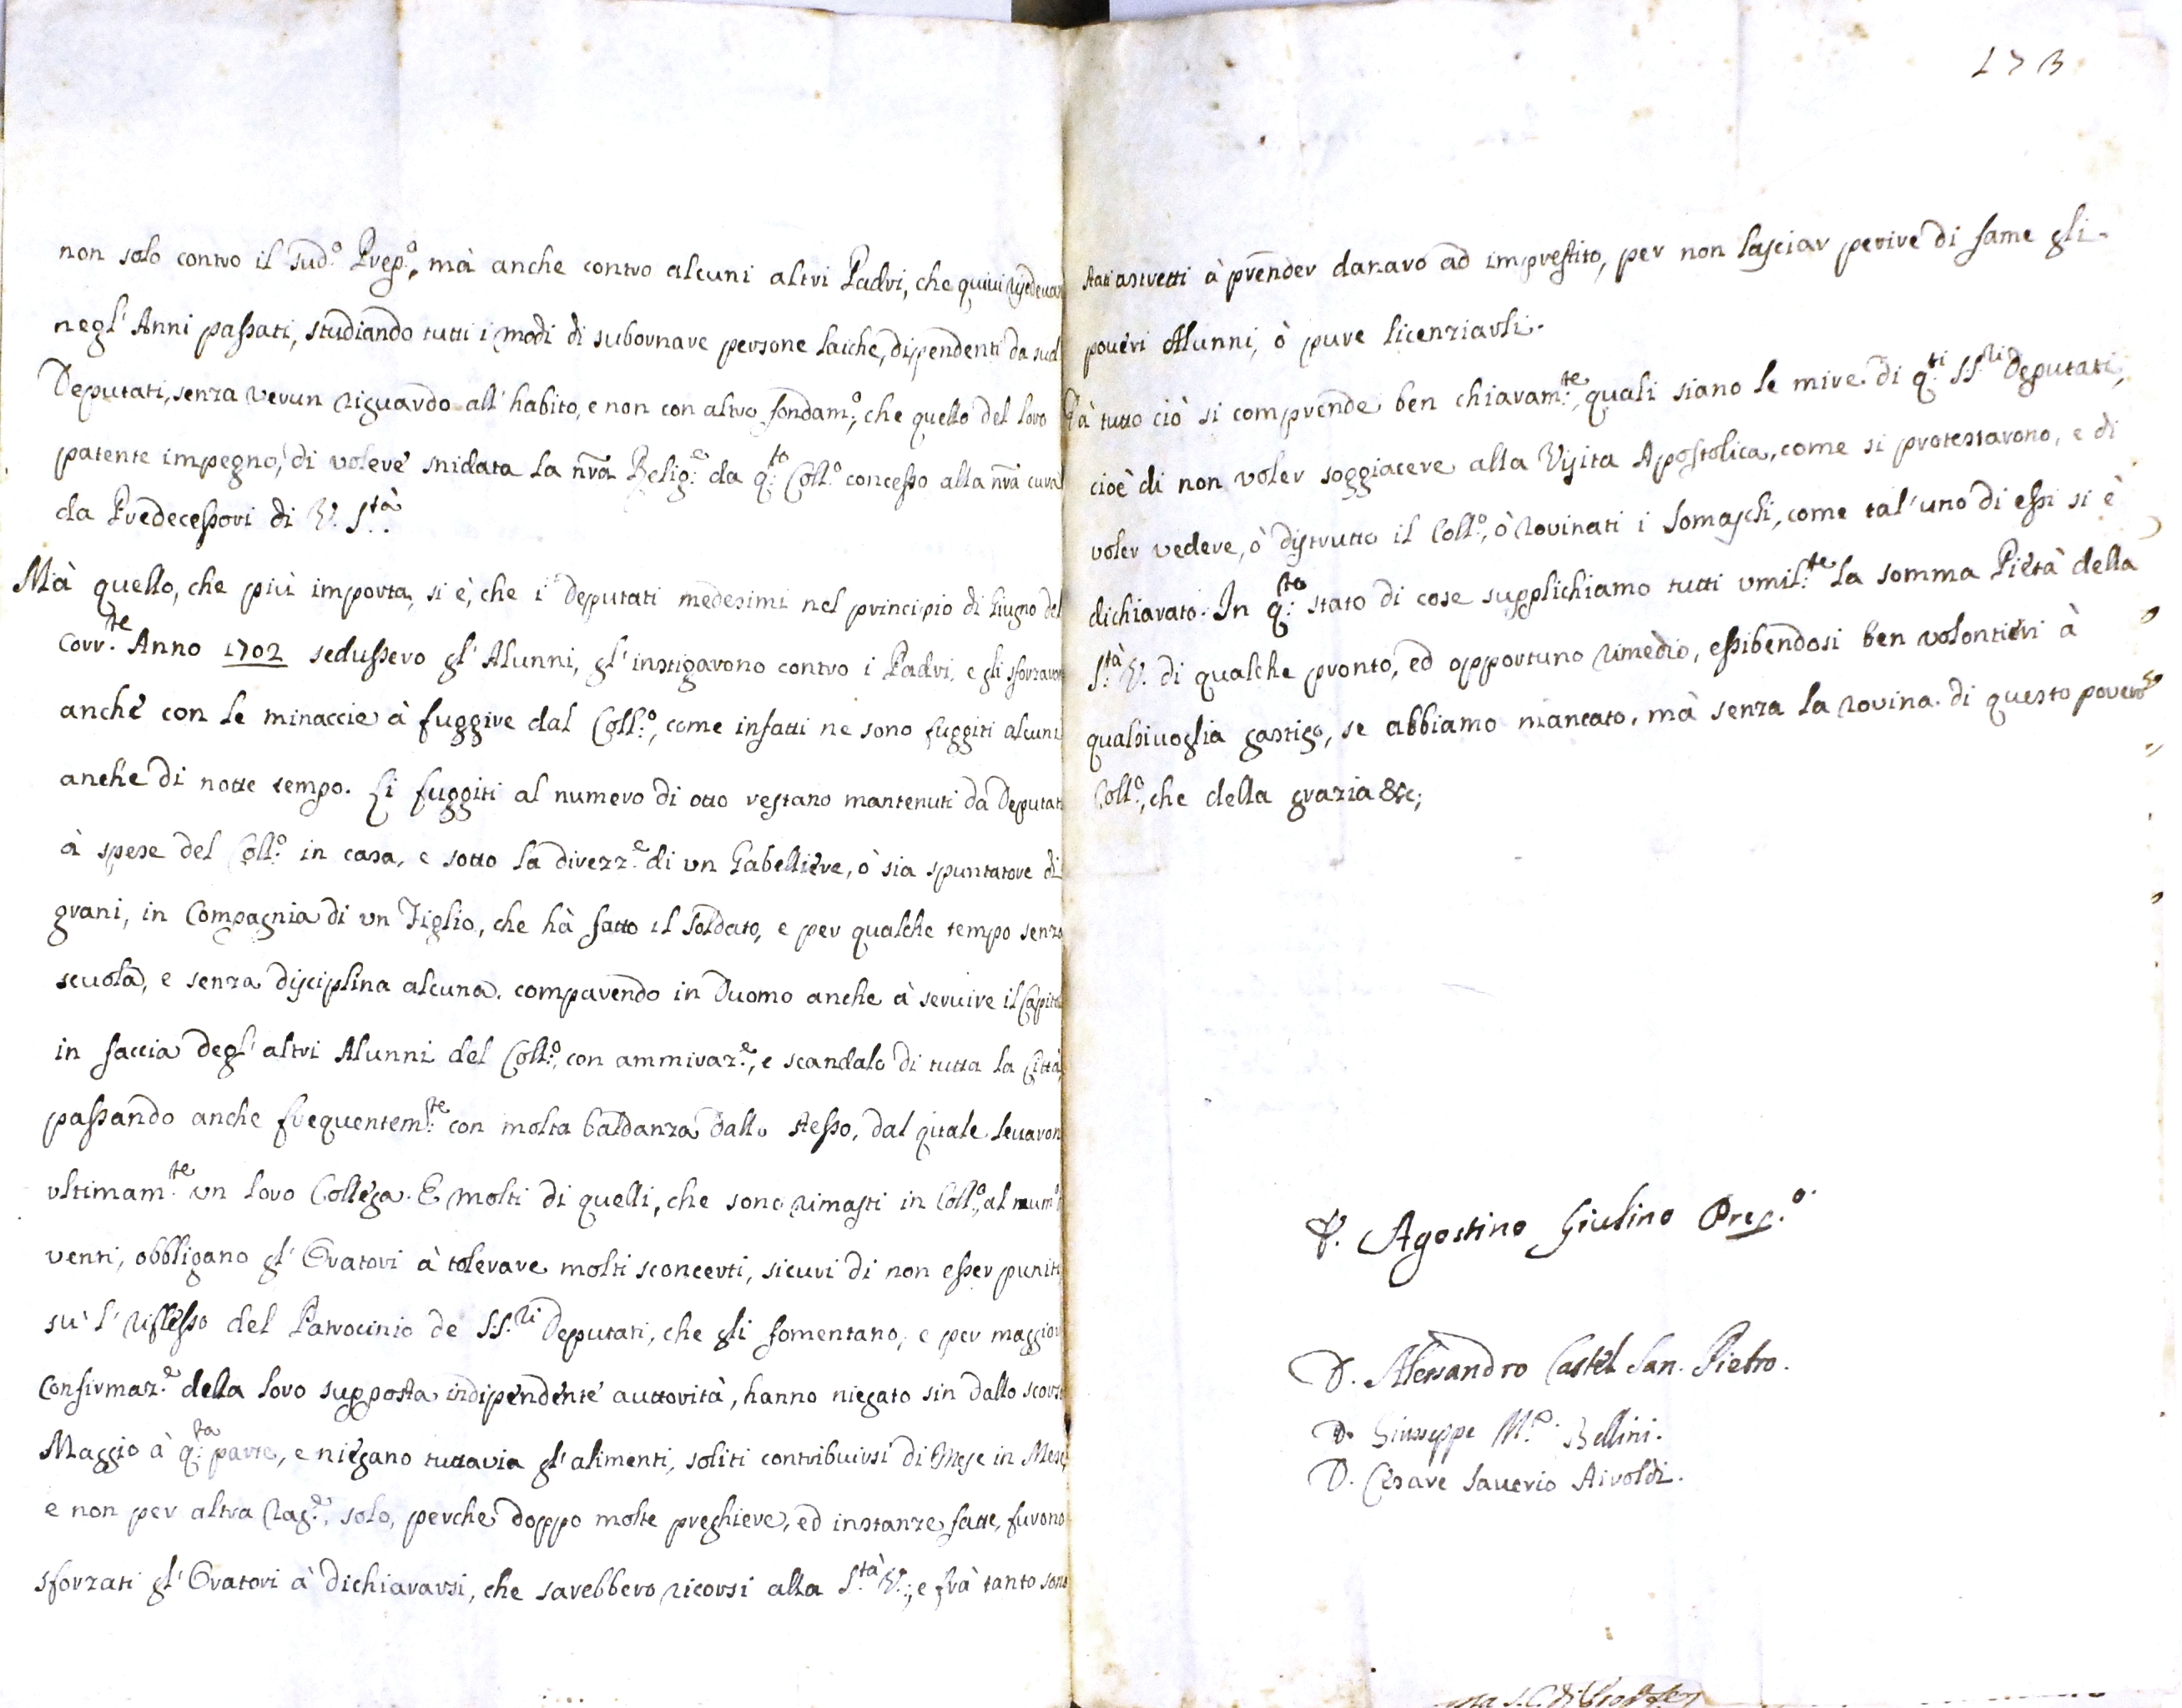 non solo contro il sud.º Prep.º, mà anche contro alcuni altri Padri, che quivi
negl' Anni passati, studiando tutti i modi di subornare persone laiche, dipendenti da sud
Deputati, senza verun riguardo all' habito, e non con altro fondam.º, che quello del loro
patente impegno, di volere snidata la nrã Relig.e da q.to Coll.º concesso alla nrã cura
da Predecessori di V. S.tà
Mà quello, che più importa, si è, che i Deputati medesimi nel principio di Giugno del
Corr.te Anno 1702 sedussero gl' Alunni, gl' instigarono contro i Padri, e gli sforzaron
anche con le minaccie à fuggire dal Coll.º, come infatti ne sono fuggiti alcuni
anche di notte tempo. Li fuggiti al numero di otto restano mantenuti da Deputati
à spese del Coll.º in casa, e sotto la direzz.e di un Gabelliere, ò sia spuntatore di
grani, in Compagnia di un Figlio, che hà fatto il soldato, e per qualche tempo senza
scuola, e senza disciplina alcuna, comparendo in Duomo anche à servire il Capitolo
in faccia degl' altri Alunni del Coll.º, con ammiraz.e, e scandalo di tutta la Città,
passando anche frequentem.te con molta baldanza dallo stesso, dal quale levaron
ultimam.te un loro Collega. E molti di quelli, che sono rimasti in Coll.º, al num.º
venti, obbligano gl' Oratori à tolerare molti sconcerti, sicuri di non esser puniti
sù l' riflesso del Patrocinio de SS.ri Deputati, che gli fomentano, e per maggior
Confirmaz.e della loro supposta indipendente auttorità, hanno niegato sin dallo scorso
Maggio à q.ta parte, e niegano tuttavia gl' alimenti, soliti contribuirsi di Mese in Mese,
e non per altra Rag.e, solo, perche doppo molte preghiere, ed instanze fatte, furono
sforzati gl' Oratori à dichiararsi, che sarebbero ricorsi alla S.tà V.; e frà tanto sono
173
stati astretti à prender danaro ad imprestito, per non lasciar perire di fame gli
poveri Alunni, ò pure licenziarli.
Dà tutto ciò si comprende ben chiaram.te, quali siano le mire di q.ti SS.ri Deputati,
cioè di non voler soggiacere alla Visita Apostolica, come si protestarono, e di
voler vedere, ò distrutto il Coll.º, ò rovinati i Somaschi, come tal' uno di essi si è
dichiarato. In q.to stato di cose supplichiamo tutti umil.te la somma Pietà della
S.tà V. di qualche pronto, ed opportuno rimedio, essibendosi ben volontieri à
qualsivoglia gastigo, se abbiamo mancato, mà senza la rovina di questo povero
Coll.º, che della grazia &c;
D. Agostino Giulino Prep.º
D. Alessandro Castel San. Pietro.
D. Giuseppe M.a Bellini.
D. Cesare Saverio Airoldi.